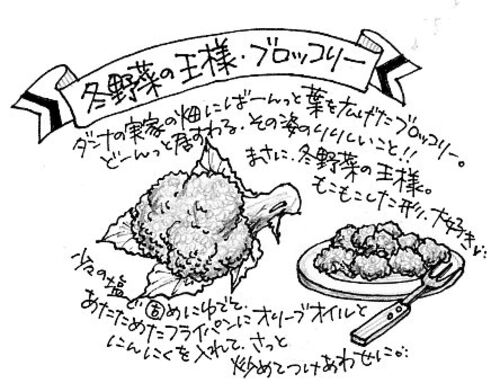 冬野菜の王様・ブロッコリー
ダンナの実家の畑にばーんっと葉を広げたブロッコリー。
どーんっと居すわる、その姿のりりしいこと!!
まさに、冬野菜の王様。
もこもこした形り、大好き
少々の塩で固めにゆでて、
あたためたフライパンにオリーブオイルと
にんにくを入れて、さっと
炒めてつけあわせに